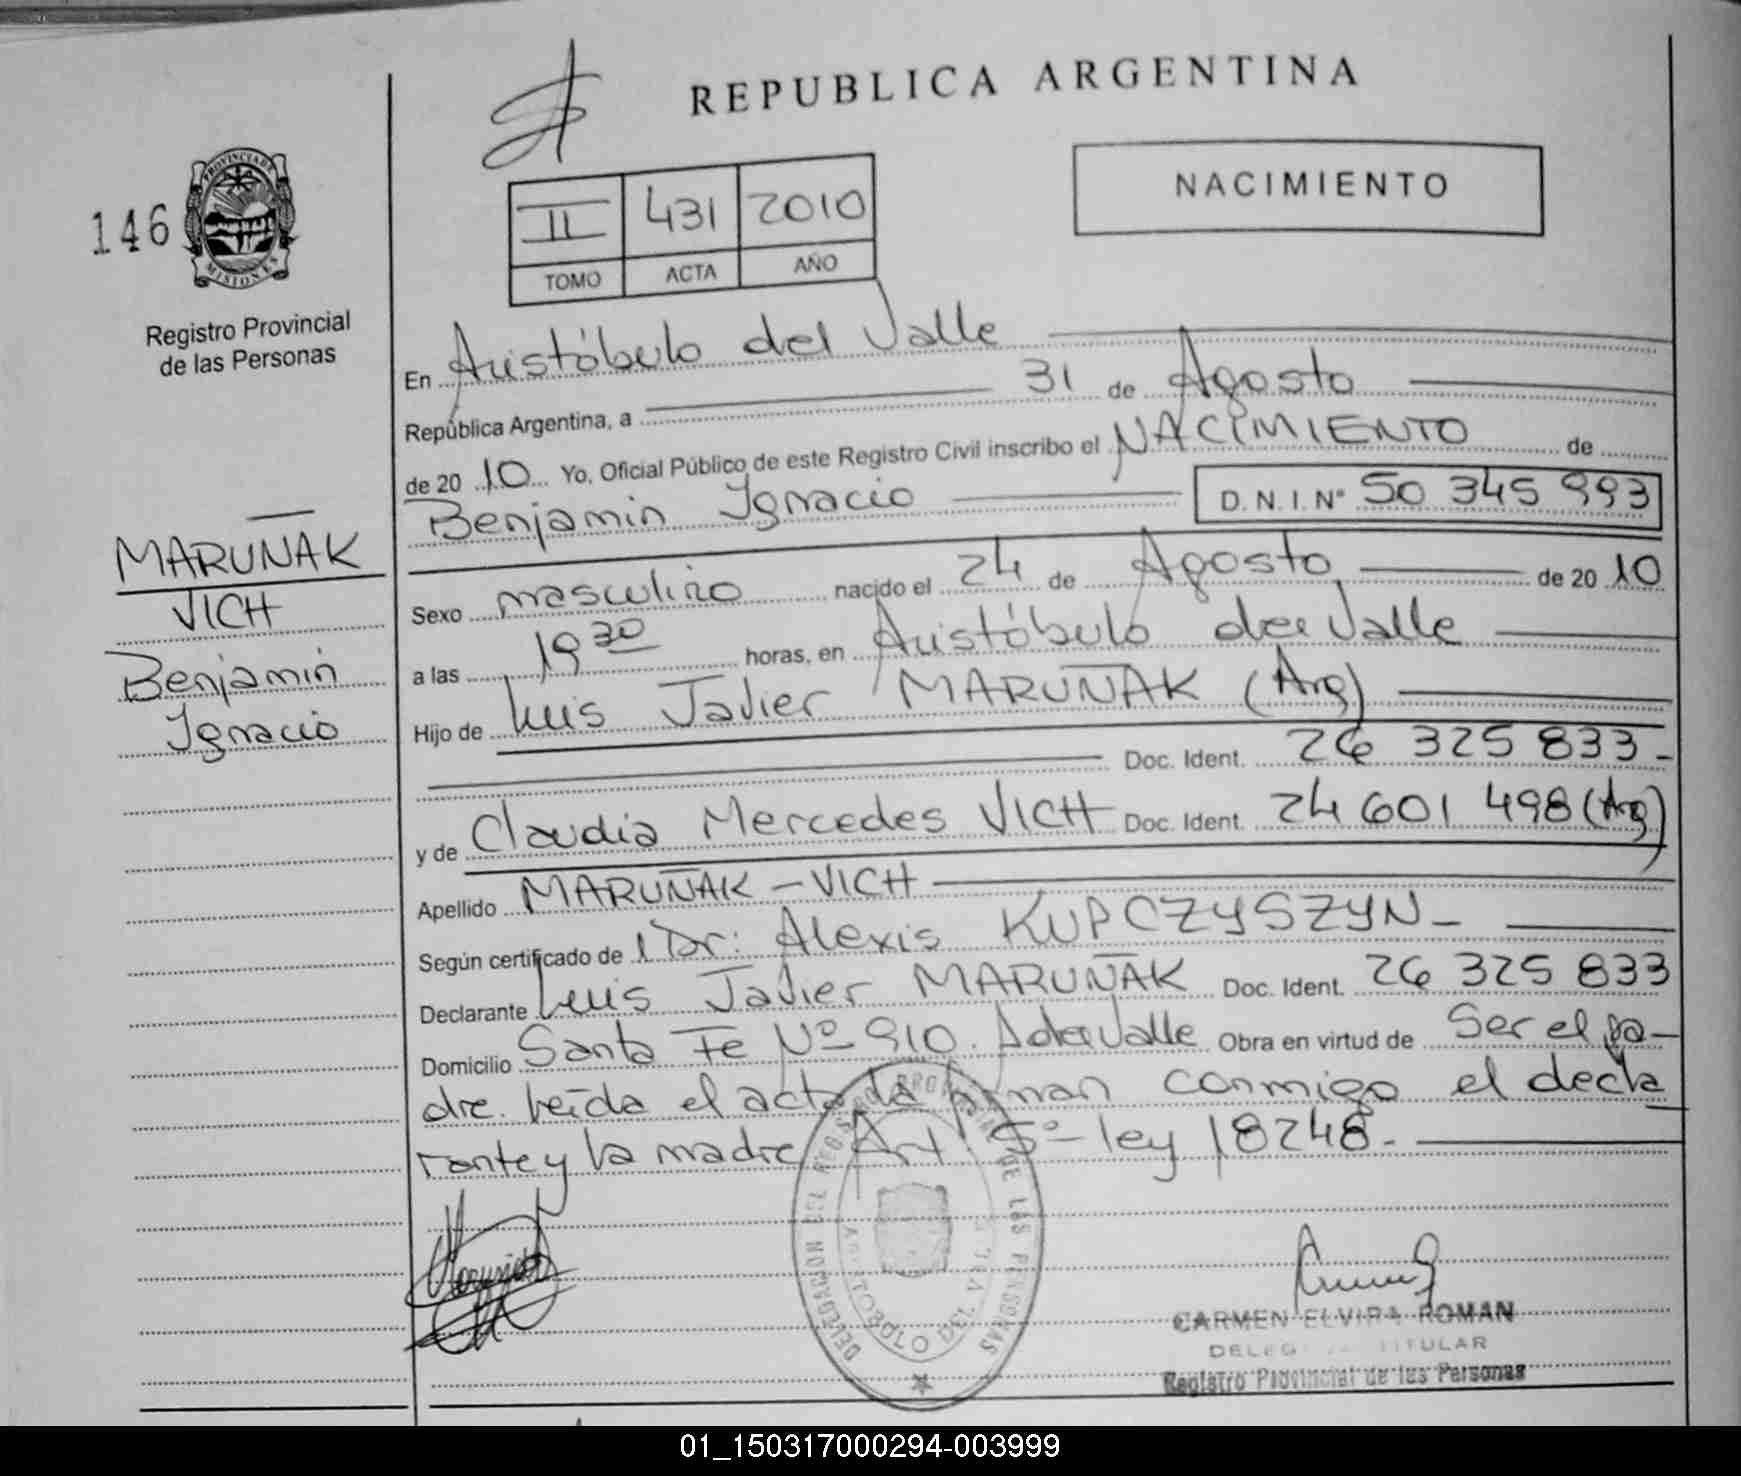 REPUBLICA ARGENTINA
146
PROVINCIA DE
MISIONES
Registro Provincial
de las Personas
II 431 2010
TOMO ACTA AÑO
NACIMIENTO
En Aristóbulo del Valle
República Argentina, a 31 de Agosto
de 20 10 Yo, Oficial Público de este Registro Civil inscribo el NACIMIENTO de
Benjamin Ignacio D.N.I.Nº 50 345 993
MARUÑAK
VICH
Benjamin
Ignacio
Sexo masculino nacido el 24 de Agosto de 20 10
a las 19 30 horas, en Aristóbulo del Valle
Hijo de Luis Javier MARUÑAK (Arg)
Doc. Ident. 26 325 833-
y de Claudia Mercedes VICH Doc. Ident. 24 601 498 (Arg)
Apellido MARUÑAK - VICH
Según certificado de l Dr: Alexis KUPCZYSZYN-
Declarante Luis Javier MARUÑAK Doc. Ident. 26 325 833
Domicilio Santa Fe Nº 910. A del Valle Obra en virtud de Ser el pa-
dre. leída el acta la firman conmigo el decla
rante y la madre Art: 5º- ley 18248.-
DELEGACION DEL REGISTRO PROVINCIAL DE LAS PERSONAS
ARISTOBULO DEL VALLE
CARMEN ELVIRA ROMAN
TITULAR
Registro Provincial de las Personas
01_150317000294-003999